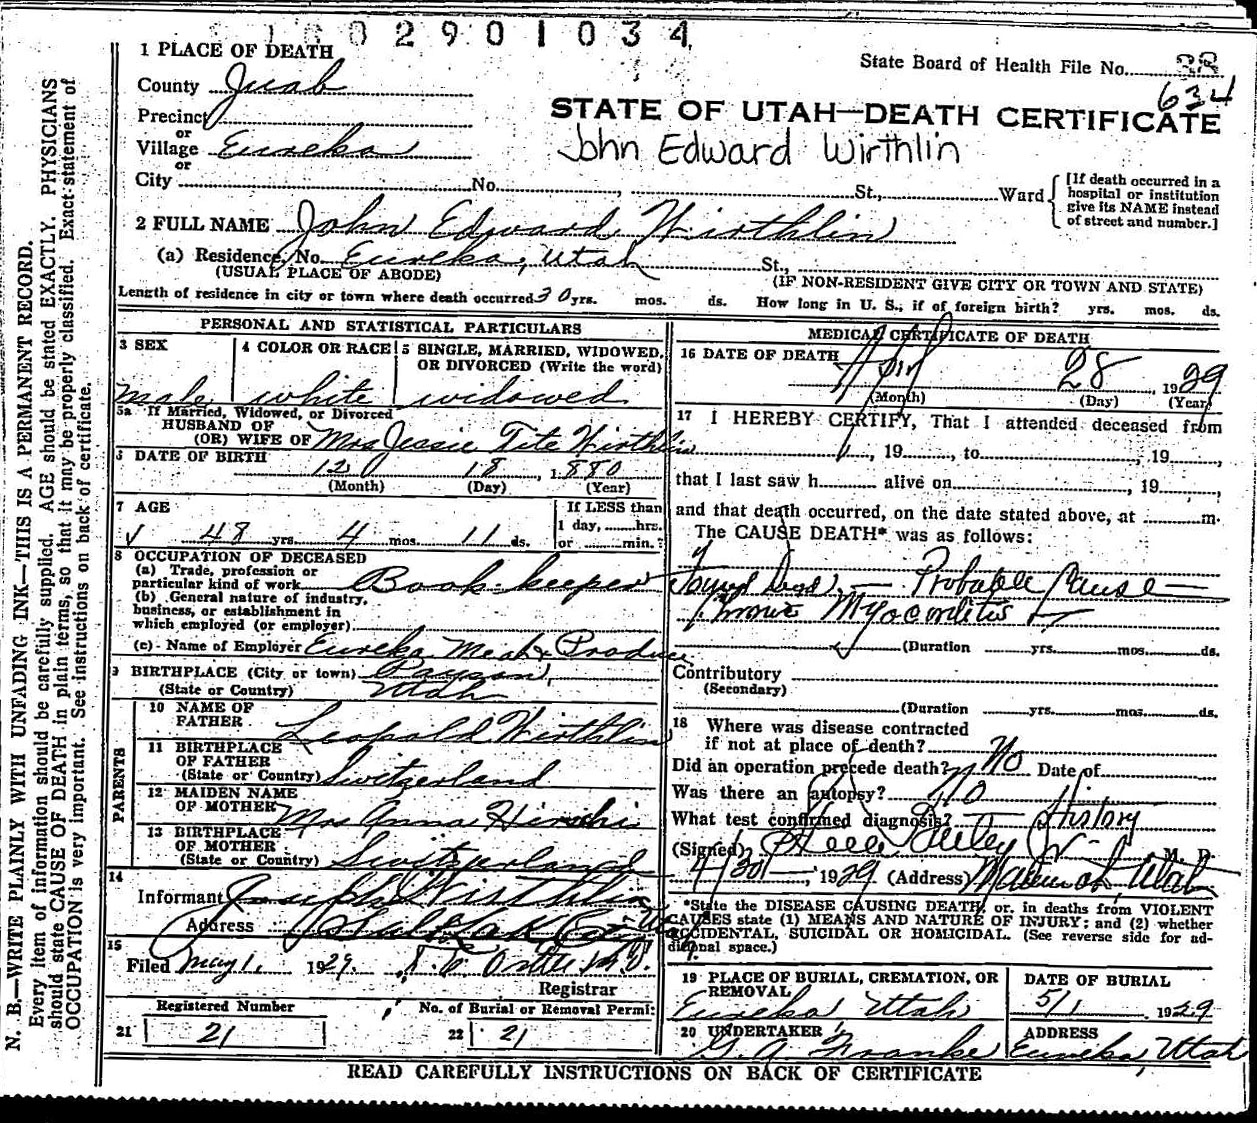 2901034
1 PLACE OF DEATH
State Board of Health File No. 38
634
County Juab
STATE OF UTAH—DEATH CERTIFICATE
Precinct
or
Village Eureka
John Edward Wirthlin
or
City No. , St., Ward
[If death occurred in a
hospital or institution
give its NAME instead
of street and number.]
2 FULL NAME John Edward Wirthlin
(a) Residence, No. Eureka, Utah St.,
(USUAL PLACE OF ABODE) (IF NON-RESIDENT GIVE CITY OR TOWN AND STATE)
Length of residence in city or town where death occurred 30 yrs. mos. ds. How long in U. S., if of foreign birth? yrs. mos. ds.
PERSONAL AND STATISTICAL PARTICULARS
3 SEX
male
4 COLOR OR RACE
white
5 SINGLE, MARRIED, WIDOWED,
OR DIVORCED (Write the word)
widowed
5a If Married, Widowed, or Divorced
HUSBAND OF
(OR) WIFE OF Mrs Jessie Tite Wirthlin
6 DATE OF BIRTH
12 18, 1880
(Month) (Day) (Year)
7 AGE
48 yrs. 4 mos. 11 ds.
If LESS than
1 day, hrs.
or min.?
8 OCCUPATION OF DECEASED
(a) Trade, profession or
particular kind of work Book-keeper
(b) General nature of industry,
business, or establishment in
which employed (or employer)
(c) Name of Employer Eureka Meat & Produce
9 BIRTHPLACE (City or town) Payson,
(State or Country) Utah
PARENTS
10 NAME OF
FATHER Leopold Wirthlin
11 BIRTHPLACE
OF FATHER
(State or Country) Switzerland
12 MAIDEN NAME
OF MOTHER Mrs Anna Hirschi
13 BIRTHPLACE
OF MOTHER
(State or Country) Switzerland
14
Informant Joseph Wirthlin
Address Salt Lake City
15
Filed May 1, 1929.
Registrar
Registered Number
21 21
No. of Burial or Removal Permit
22 21
MEDICAL CERTIFICATE OF DEATH
16 DATE OF DEATH April 28, 1929
(Month) (Day) (Year)
17 I HEREBY CERTIFY, That I attended deceased from
, 19 , to , 19 ,
that I last saw h alive on , 19 ,
and that death occurred, on the date stated above, at m.
The CAUSE DEATH* was as follows:
Found Dead, — Probable Cause —
Myocarditis
(Duration yrs. mos. ds.
Contributory
(Secondary)
(Duration yrs. mos. ds.
18 Where was disease contracted
if not at place of death?
Did an operation precede death? No Date of
Was there an autopsy? No
What test confirmed diagnosis? History
(Signed) Steele Bailey Jr., M. D.
4/30, 1929 (Address) Mammoth Utah
*State the DISEASE CAUSING DEATH, or, in deaths from VIOLENT
CAUSES state (1) MEANS AND NATURE OF INJURY; and (2) whether
ACCIDENTAL, SUICIDAL OR HOMICIDAL. (See reverse side for ad-
ditional space.)
19 PLACE OF BURIAL, CREMATION, OR
REMOVAL
Eureka Utah
DATE OF BURIAL
5/1 1929
20 UNDERTAKER
G. A. Franke
ADDRESS
Eureka, Utah
READ CAREFULLY INSTRUCTIONS ON BACK OF CERTIFICATE
N. B.—WRITE PLAINLY WITH UNFADING INK—THIS IS A PERMANENT RECORD.
Every item of information should be carefully supplied. AGE should be stated EXACTLY. PHYSICIANS
should state CAUSE OF DEATH in plain terms, so that it may be properly classified. Exact statement of
OCCUPATION is very important. See instructions on back of certificate.